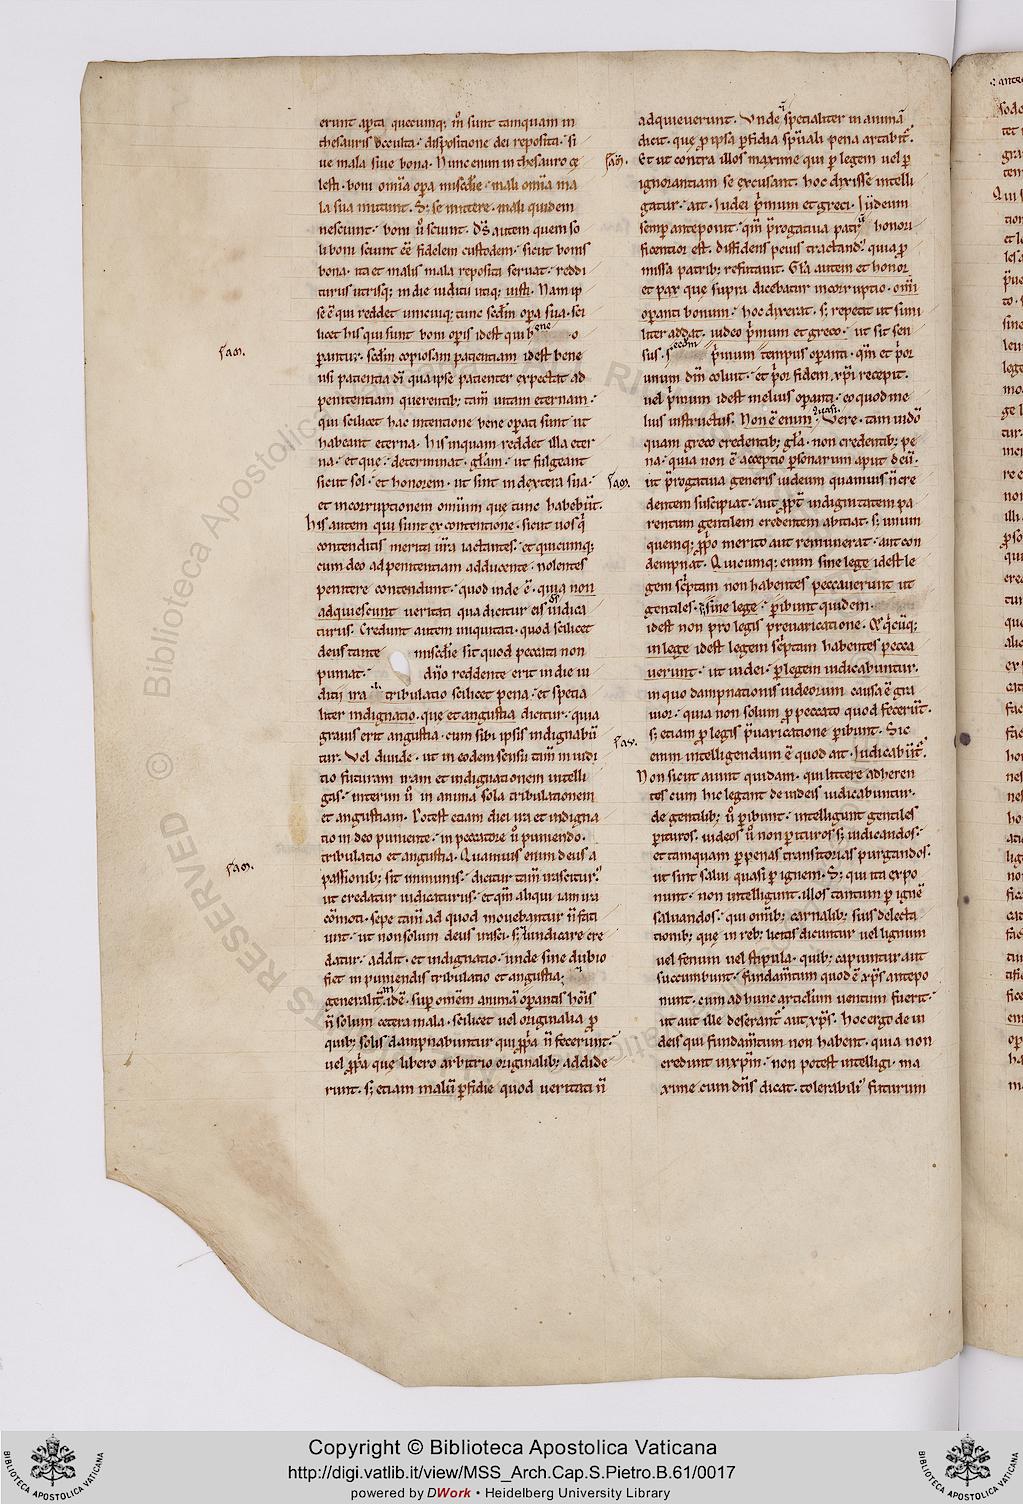 erunt aꝑta quecumq; m̊ sunt tamquam in
thesauris occulta · dispositione dei reposita · si
ue mala siue bona · Nunc enim in thesauro cę
lesti · boni om̄ia oꝑa misc̄die · mali om̄ia ma
la sua mittunt · S; se mittere · mali quidem
nesciunt · boni ů sciunt · D̄s autem quem so
li boni sciunt ēē fidelem custodem · sicut bonis
bona · ita et malis mala reposita seruat · reddi
turus utrisq; in die iuditii utiq; iusti · Nam ip
se ē qui reddet unicuiq; tunc sc̄dm oꝑa sua · sci
licet his qui sunt boni oꝑis idest qui bene o
ꝑantur · sc̄dm copiosam patientiam idest bene
usi patientia dī qua ipse patienter expectat ad
penitentiam querentib; tam̄ uitam eternam ·
qui scilicet hac intentione bene oꝑati sunt ut
habeant eterna · his inquam reddet illa eter
na · et que · determinat · gl̄am · ut fulgeant
sicut sol · et honorem · ut sint in dextera sua ·
et incorruptionem omnium que tunc habebūt ·
his autem qui sunt ex contentione · sicut uos q̄
contenditis merita ur̄a iactantes · et quicumq;
cum deo ad penitentiam adducente · nolentes
penitere contendunt · quod inde ē · quia non
adquiescunt ueritati qua dicitur eis d̄s iudica
turus · Credunt autem iniquitati · quod scilicet
deus tante misc̄die sit quod peccata non
puniat · dn̄o reddente erit in die iu
ditij ira · tribulatio scilicet pena · et specia
liter indignatio · que et angustia dicitur · quia
grauis erit angustia · cum sibi ipsis indignabū
tur · Vel diuide · ut in eodem sensu tam̄ in iudi
tio futuram iram et indignationem intelli
gas · interim ů in anima sola tribulationem
et angustiam · Potest etiam dici ira et indigna
tio in deo puniente · in peccatore ů puniendo ·
tribulatio et angustia · Quamuis enim deus a
passionib; sit immunis · dicitur tam̄ irascitur ·
ut credatur iudicaturus · et qm̄ aliqui iam ira
cōmoti · sepe tam̄ ad quod mouebantur n̄ faci
unt · ut non solum deus irasci · s; iudicare cre
datur · addit · et indignatio · unde sine dubio
fiet in puniendis tribulatio et angustia;
generalit̄ in idē · suꝑ omēm animā oꝑantis hōis
n̄ solum cetera mala · scilicet uel originalia ꝑ
quib; solis dampnabuntur qui ꝓpa n̄ fecerunt ·
uel ꝓpa que libero arbitrio originalib; addide
runt · s; etiam malū ꝑfidie quod ueritati n̄
adquieuerunt · Vnde specialiter in animā
dicit · que ꝓ ipsa ꝑfidia spūali pena artabit̄ ·
Et ut contra illos maxime qui ꝑ legem uel ꝑ
ignorantiam se excusant · hoc dixisse intelli
gatur · ait · iudei p̄mum et greci · Iudeum
semꝑ anteponit · qm̄ p̄rogatiua patrū honori
ficentior est · diffidens peius tractand; quia ꝓ
missa patrib; refutauit · Gl̄a autem et honor
et pax que supra dicebatur incorruptio · om̄i
oꝑanti bonum · hoc dixerat · s; repetit ut simi
liter addat · iudeo p̄mum et greco · ut sit sen
sus · secdm p̄mum tempus oꝑanti · qm̄ et p̄or
unum dm̄ coluit · et p̄or fidem xp̄i recepit ·
uel p̄mum idest melius oꝑanti · eo quod me
lius instructus · Non ē enim · quasi · Vere · tam iudō
quam greco credentib; gl̄a · non credentib; pe
na · quia non ē acceptio ꝑsonarum aput deū ·
ut p̄rogatiua generis iudeum quamuis n̄ cre
dentem suscipiat · aut ꝓpt̄ indignitatem pa
rentum gentilem credentem abiciat · s; unum
quemq; ꝓpo merito aut remunerat · aut con
dempnat · Quicumq; enim sine lege idest le
gem sc̄ptam non habentes peccauerunt ut
gentiles · sine lege · ꝑibunt quidem ·
idest non pro legis preuaricatione · Et q̄cūq;
in lege idest legem sc̄ptam habentes pecca
uerunt · ut iudei · ꝑ legem iudicabuntur ·
in quo dampnationis iudeorum causa ē gra
uior · quia non solum ꝓ peccato quod fecerūt ·
s; etiam ꝓ legis p̄uaricatione ꝑibunt · Sic
enim intelligendum ē quod ait · iudicabūt̄ ·
Non sicut aiunt quidam · qui littere adheren
tes cum hic legant de iudeis iudicabuntur ·
de gentilib; ů ꝑibunt · intelligunt gentiles
ꝑituros · iudeos ů non ꝑituros s; iudicandos ·
et tamquam ꝑ penas transitorias purgandos ·
ut sint salui quasi ꝑ ignem · S; qui ita expo
nunt · non intelligunt · illos tantum ꝑ ignē
saluandos · qui om̄ib; carnalib; siue delecta
tionib; que in reb; licitis dicuntur uel lignum
uel fenum uel stipula · quib; capiuntur aut
succumbunt · fundam̄tum quod ē xp̄s antepo
nunt · cum ad hunc articlūm uentum fuerit ·
ut aut ille deserant̄ aut xp̄s · hoc ergo de iu
deis qui fundam̄tum non habent · quia non
credunt in xp̄m · non potest intelligi · ma
xime cum dn̄s dicat · tolerabiliū futurum
Copyright © Biblioteca Apostolica Vaticana
http://digi.vatlib.it/view/MSS_Arch.Cap.S.Pietro.B.61/0017
powered by DWork • Heidelberg University Library